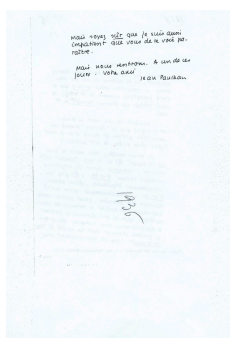 Mais soyez sûr que je suis aussi
impatient que vous de le voir pa-
raître.
Mais nous rentrons. A un de ces
jours. Votre ami
Jean Paulhan
1936